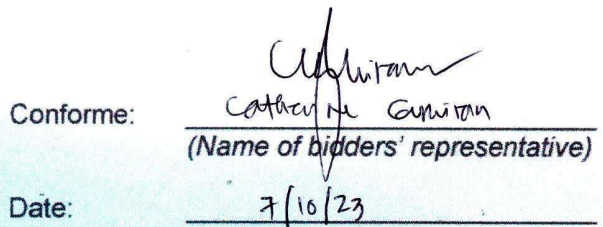 Conforme: Catherine
(Name of bidders' representative)
Date: 7/10/23